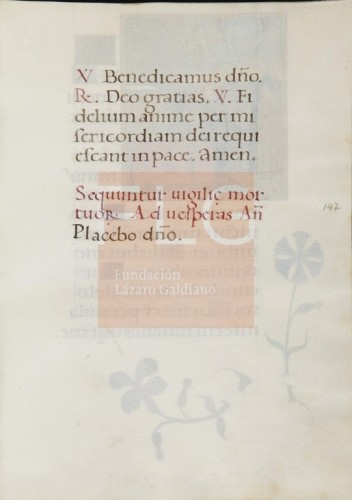 V Benedicamus dño.
R. Deo gratias. V. Fi
delium anime per mi
sericordiam dei requi
escant in pace. Amen.
Sequuntur vigilię mor
tuoꝝ. Ad vesperas Añ
Placebo dño.
147
FLG
Fundación
Lázaro Galdiano